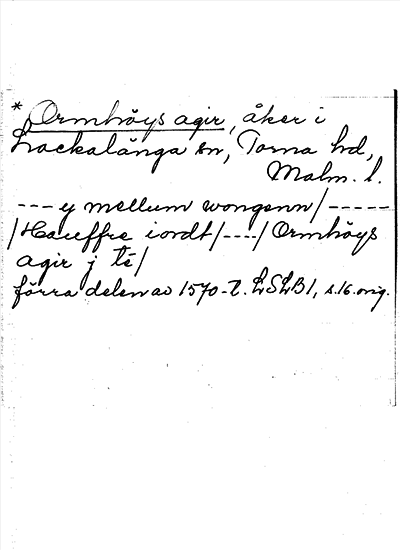 * Ormhöys agir, åker i
Lackalänga sn, Torna hd,
Malm. l.
--- y mellum wongenn/-----
/Hauffre iordt/----/Ormhöys
agir j té/
förra delen av 1570-t. LSLB1, s.16. orig.